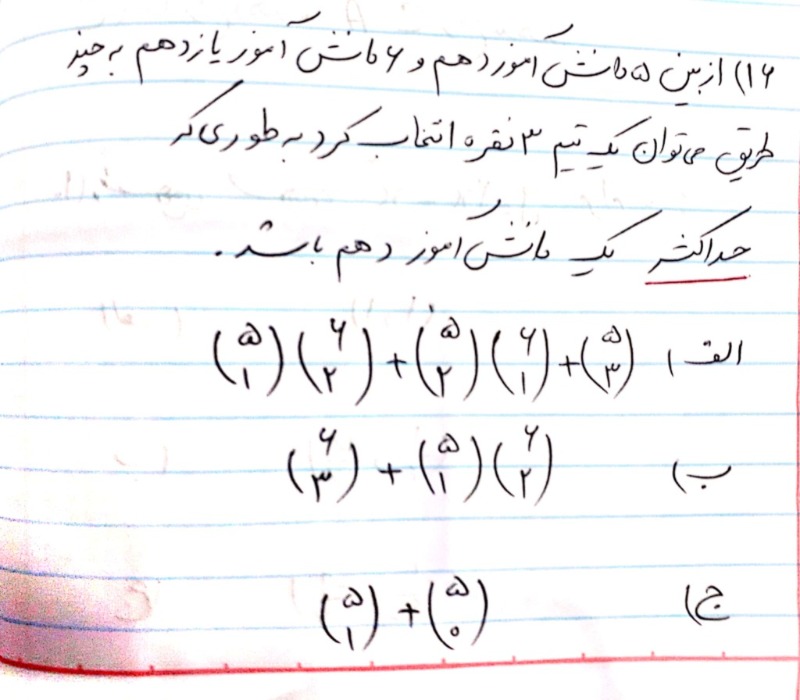 ۱۶) از بین ۵ دانش آموز دهم و ۶ دانش آموز یازدهم به چند
طریق می‌توان یک تیم ۳ نفره انتخاب کرد به طوری که
حداکثر یک دانش آموز دهم باشد.
الف) (۵ ۱)(۶ ۲) + (۵ ۲)(۶ ۱) + (۵ ۳)
ب) (۶ ۳) + (۵ ۱)(۶ ۲)
ج) (۵ ۱) + (۵ ۰)